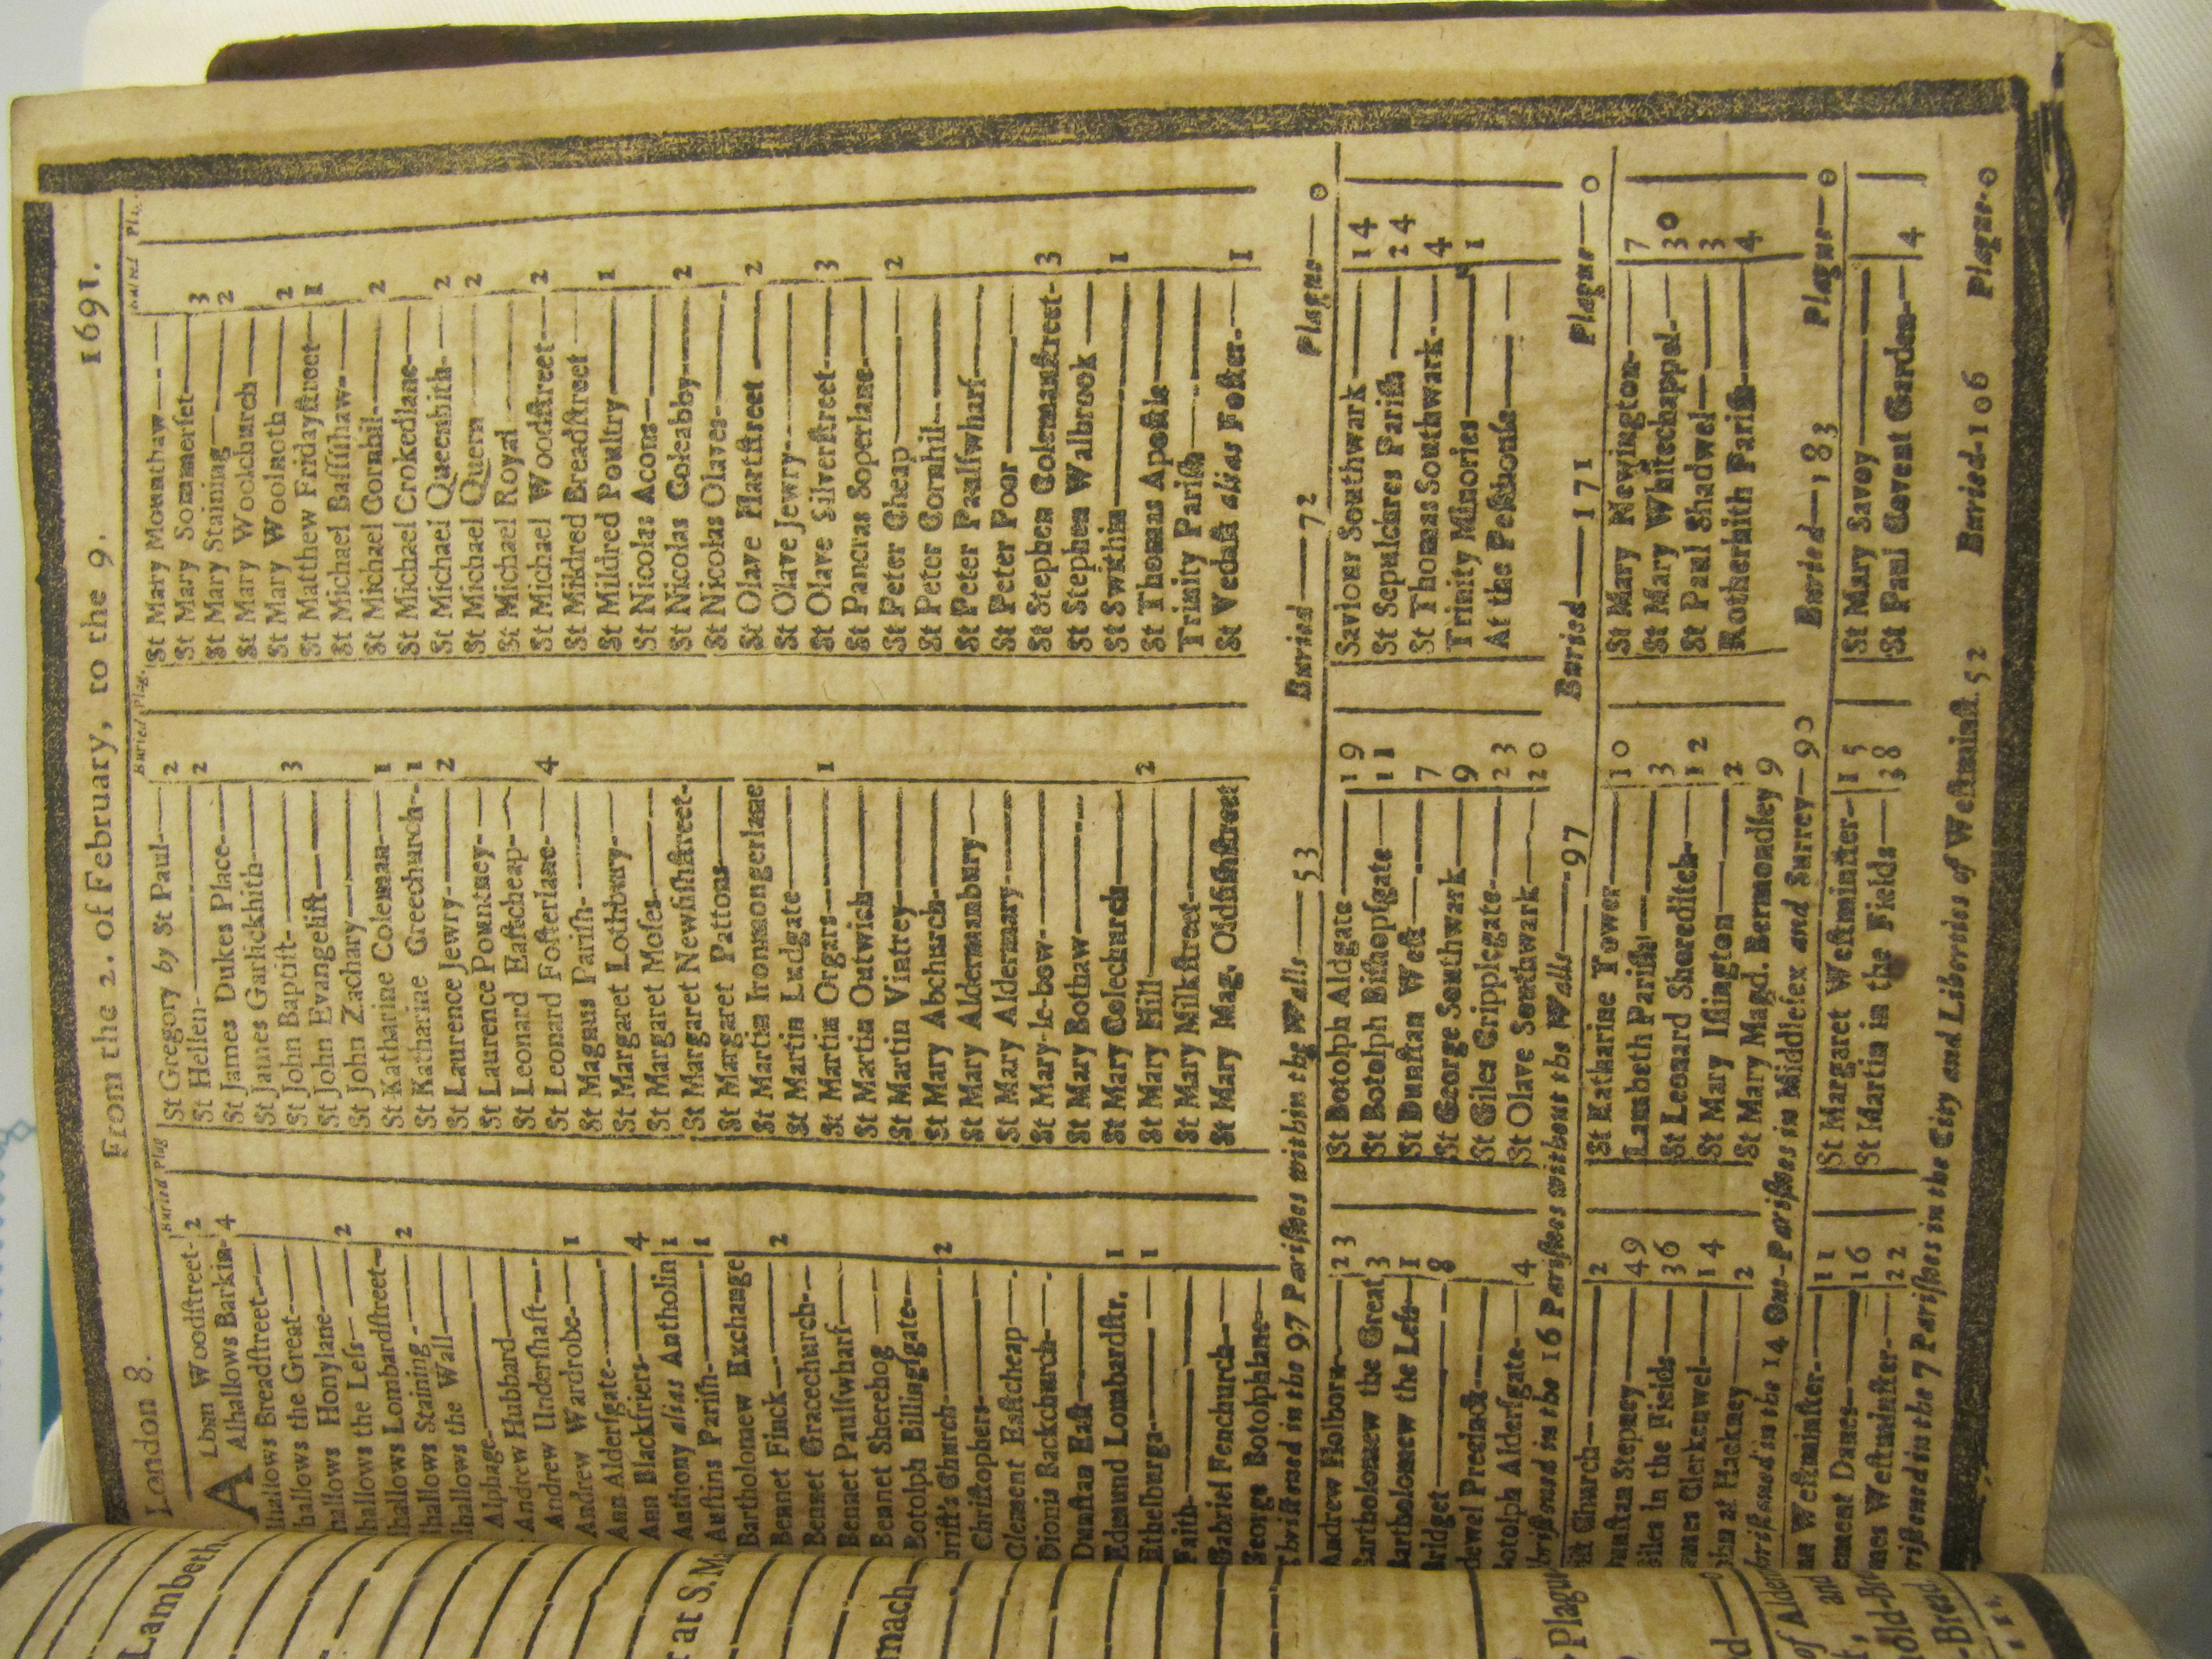 London 8. From the 2. of February, to the 9. 1691.
Buried Plag
ALban Woodſtreet- 2
Alhallows Barkin- 4
lhallows Breadſtreet
hallows the Great
hallows Honylane
hallows the Leſs 2
hallows Lombardſtreet
hallows Staining 2
lhallows the Wall
Alphage
Andrew Hubbard
Andrew Underſhaft
Andrew Wardrobe 1
Ann Alderſgate
Ann Blackfriers 4
Anthony alias Antholin 1
Auſtins Pariſh 1
Bartholomew Exchange
Bennet Finck 2
Bennet Gracechurch
Bennet Paulſwharf
Bennet Sherehog
Botolph Billingſgate
hriſt's Church 2
Chriſtophers
Clement Eaſtcheap
Dionis Backchurch
Dunſtan Eaſt
Edmund Lombardſtr. 1
Ethelburga 1
Faith
Gabriel Fenchurch
George Botolphlane
Buried Plag.
St Gregory by St Paul 2
St Hellen 2
St James Dukes Place
St James Garlickhith
St John Baptiſt 3
St John Evangeliſt
St John Zachary
St Katharine Coleman 1
St Katharine Creechurch 1
St Laurence Jewry 2
St Laurence Pountney
St Leonard Eaſtcheap
St Leonard Foſterlane 4
St Magnus Pariſh
St Margaret Lothbury
St Margaret Moſes
St Margaret Newfiſhſtreet
St Margaret Pattons
St Martin Ironmongerlane
St Martin Ludgate
St Martin Orgars 1
St Martin Outwich
St Martin Vintrey
St Mary Abchurch
St Mary Aldermanbury
St Mary Aldermary
St Mary-le-bow
St Mary Bothaw
St Mary Colechurch
St Mary Hill 2
St Mary Milkſtreet
St Mary Mag. Oldfiſhſtreet
Buried Pla.
St Mary Mounthaw
St Mary Sommerſet 3
St Mary Staining 2
St Mary Woolchurch
St Mary Woolnoth 2
St Matthew Fridayſtreet 1
St Michael Baſſiſhaw
St Michael Cornhil 2
St Michael Crokedlane
St Michael Queenhith 2
St Michael Quern 2
St Michael Royal
St Michael Woodſtreet 2
St Mildred Breadſtreet
St Mildred Poultry 1
St Nicolas Acons
St Nicolas Coleabby 2
St Nicolas Olaves
St Olave Hartſtreet 2
St Olave Jewry
St Olave Silverſtreet 3
St Pancras Soperlane
St Peter Cheap 2
St Peter Cornhil
St Peter Paulſwharf
St Peter Poor
St Stephen Colemanſtreet 3
St Stephen Walbrook
St Swithin 1
St Thomas Apoſtle
Trinity Pariſh
St Vedaſt alias Foſter 1
hriſtned in the 97 Pariſhes within the Walls 53 Buried 72 Plague 0
Andrew Holborn 23
Bartholomew the Great 3
Bartholomew the Leſs 1
Bridget 8
dewel Precinct
otolph Alderſgate 4
St Botolph Aldgate 19
St Botolph Biſhopſgate 11
St Dunſtan Weſt 7
St George Southwark 9
St Giles Cripplegate 23
St Olave Southwark 20
Saviour Southwark 14
St Sepulchres Pariſh 24
St Thomas Southwark 4
Trinity Minories 1
At the Peſthouſe
hriſtned in the 16 Pariſhes without the Walls 97 Buried 171 Plague 0
Church 2
unſtan Stepney 49
iles in the Fields 36
ames Clerkenwel 14
ohn at Hackney 2
St Katharine Tower 10
Lambeth Pariſh 3
St Leonard Shoreditch 12
St Mary Iſlington 2
St Mary Magd. Bermondſey 9
St Mary Newington 7
St Mary Whitechappel 30
St Paul Shadwel 3
Rotherhith Pariſh 4
hriſtned in the 14 Out-Pariſhes in Middleſex and Surrey 90 Buried 183 Plague 0
Weſtminſter 11
ement Danes 16
mes Weſtminſter 22
St Margaret Weſtminſter 15
St Martin in the Fields 38
St Mary Savoy
St Paul Covent Garden 4
riſtned in the 7 Pariſhes in the City and Liberties of Weſtminſt. 52 Buried 106 Plague 0
Lambeth
at S. M
nach
Plague
of Alder
and
old-Br
-Bread